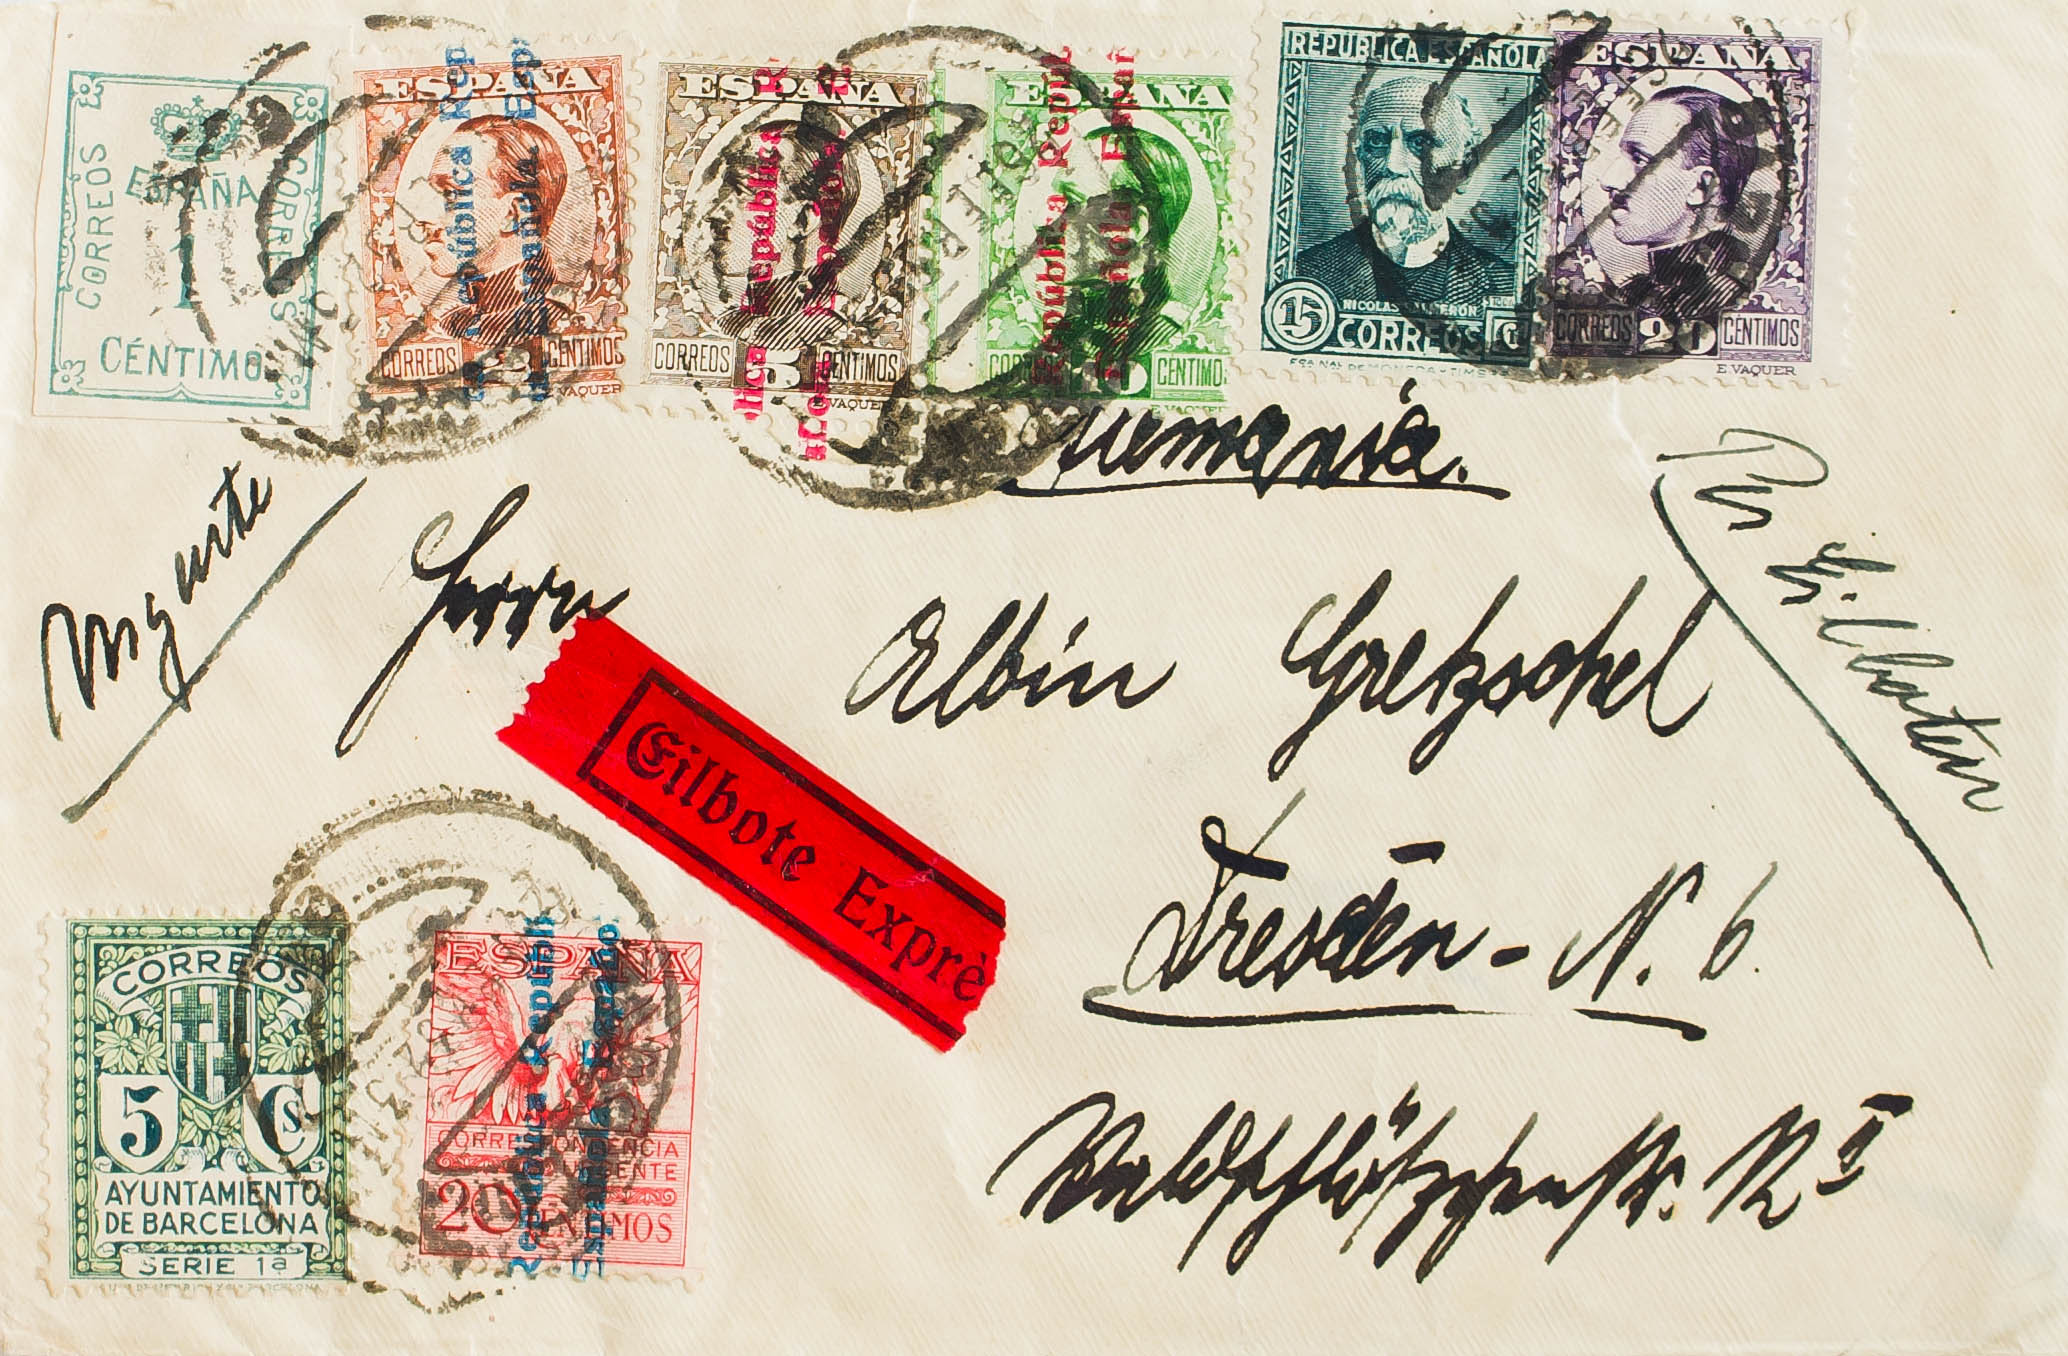 CORREOS
ESPAÑA
CORREOS
1
CÉNTIMO
ESPAÑA
República
Española
CORREOS
CÉNTIMOS
E. VAQUER
ESPAÑA
República
CORREOS 5 CÉNTIMOS
E. VAQUER
ESPAÑA
República
Española
CÉNTIMO
E. VAQUER
REPUBLICA ESPAÑOLA
15
NICOLAS SALMERON
CORREOS
ESPAÑA
CORREOS 20 CÉNTIMOS
E. VAQUER
Urgente
Per Eilboten
Herrn
Albin Gretzschel
Eilbote Exprè
Dresden - N. 6.
CORREOS
5 Cs
AYUNTAMIENTO
DE BARCELONA
SERIE 1ª
ESPAÑA
República
Española
CORRESPONDENCIA
URGENTE
20 CÉNTIMOS